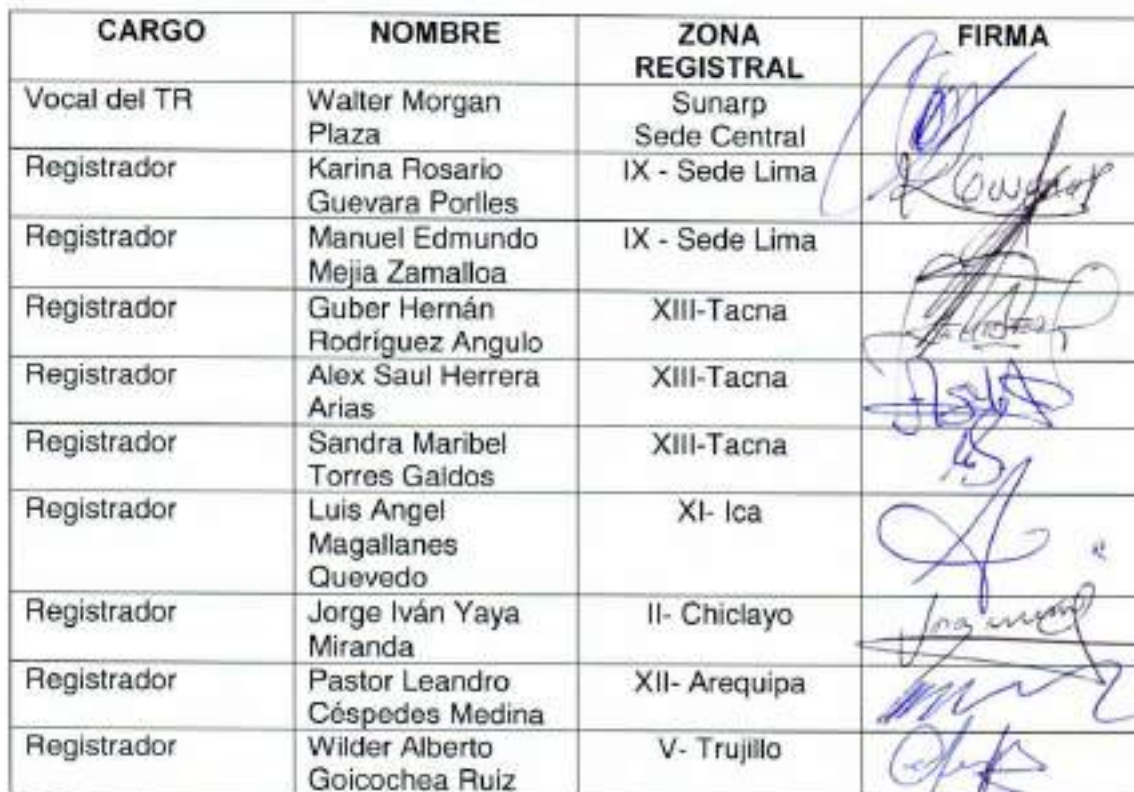 CARGO NOMBRE ZONA REGISTRAL FIRMA
Vocal del TR Walter Morgan Plaza Sunarp Sede Central
Registrador Karina Rosario Guevara Porlles IX - Sede Lima
Registrador Manuel Edmundo Mejia Zamalloa IX - Sede Lima
Registrador Guber Hernán Rodríguez Angulo XIII-Tacna
Registrador Alex Saul Herrera Arias XIII-Tacna
Registrador Sandra Maribel Torres Galdos XIII-Tacna
Registrador Luis Angel Magallanes Quevedo XI- Ica
Registrador Jorge Iván Yaya Miranda II- Chiclayo
Registrador Pastor Leandro Céspedes Medina XII- Arequipa
Registrador Wilder Alberto Goicochea Ruiz V- Trujillo